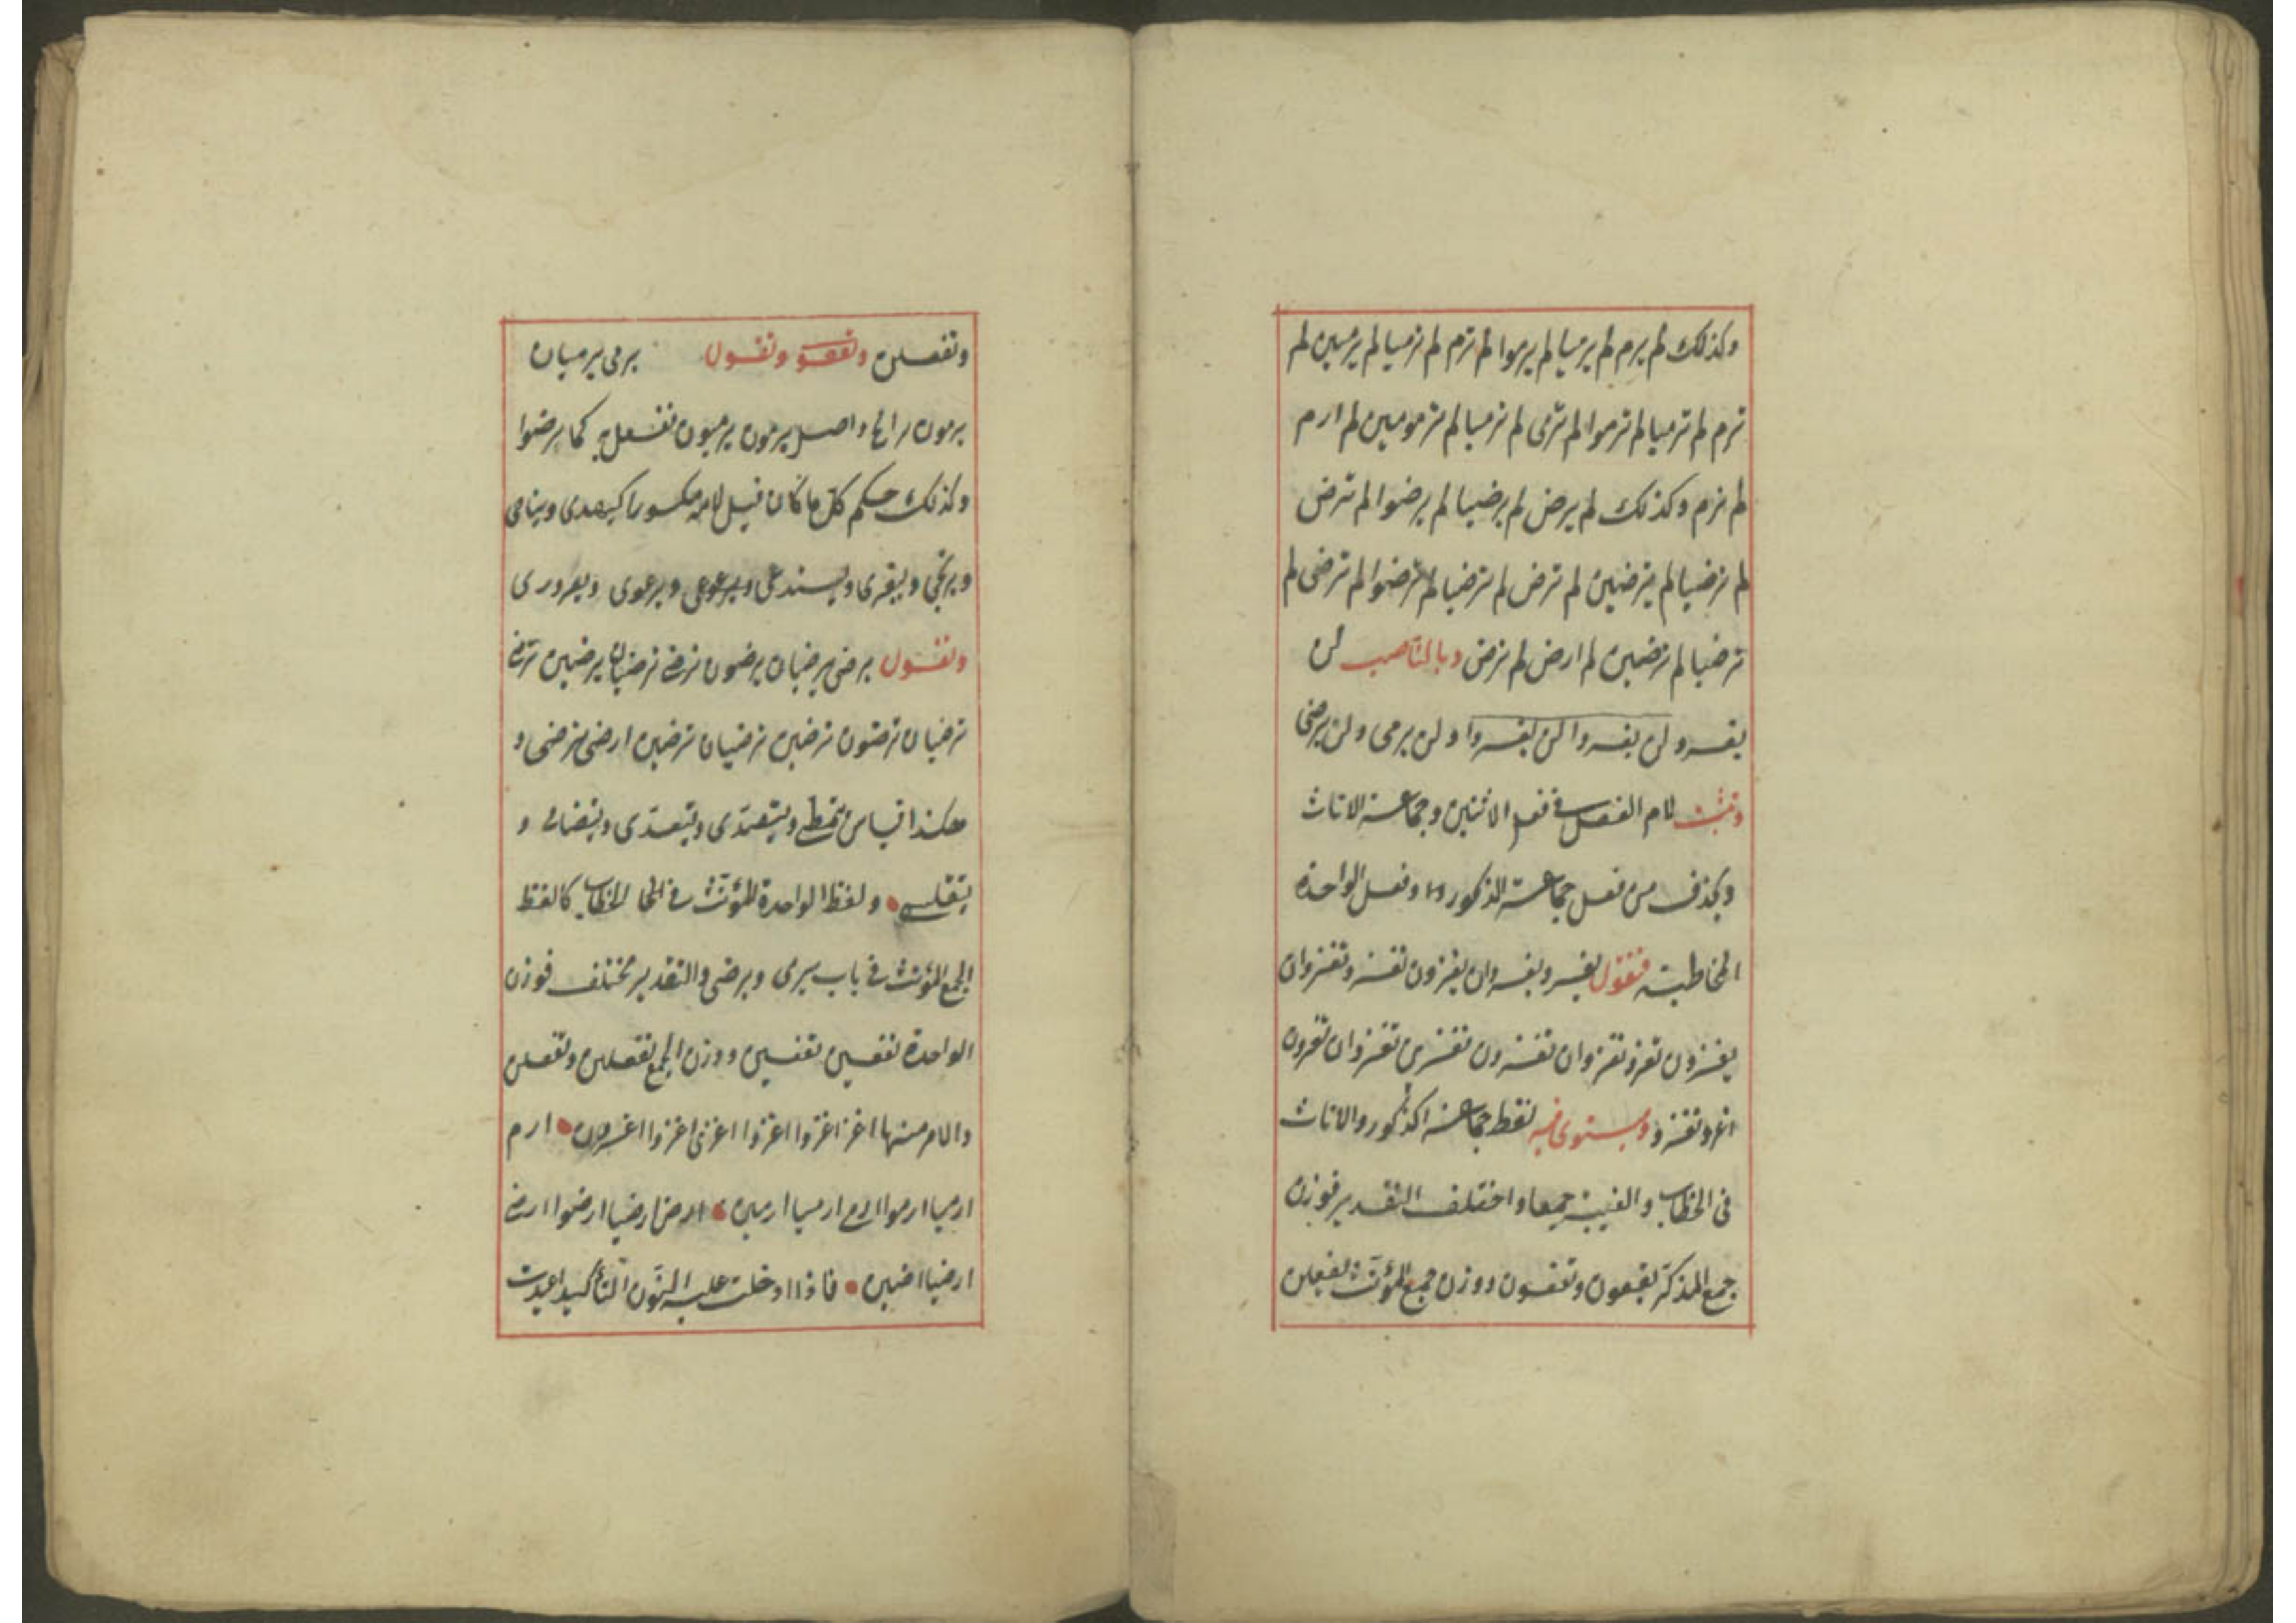 وكذلك لم يرم لم يرميا لم يرموا لم ترم لم ترميا لم يرمين لم
ترم لم ترميا لم ترموا لم ترمى لم ترميا لم ترمومين لم ارم
لم نرم وكذلك لم يرض لم يرضيا لم يرضوا لم ترض
لم ترضيا لم يرضين لم ترض لم ترضيا لم ترضوا لم ترضى لم
ترضيا لم ترضين لم ارض لم نرض وبالناصب لن
يغزو لن يغزوا لن يغزوا ولن يرمى ولن يرضى
وتثبت لام الفعل فى فعل الاثنين وجماعة الاناث
ويحذف من فعل جماعة الذكور وفعل الواحدة
المخاطبة فتقول يغزو يغزوان يغزون تغزو تغزوان
يغزون تغزو تغزوان تغزون تغزين تغزوان تغزون
اغزو نغزو ويستوى فيه لفظ جماعة الذكور والاناث
فى الخطاب والغيبة جميعا واختلف التقدير فوزن
جمع المذكر يفعون وتفعون ووزن جمع المؤنث يفعلن
وتفعلن وتقول يرمى يرميان
يرمون الخ واصل يرمون يرميون ففعل به كما برضوا
وكذلك حكم كل ما كان قبل لامه مكسورا كيهدى وينامى
ويرتجى ويستدعى ويرعوى ويعرورى
وتقول يرضى يرضيان يرضون ترضى ترضيان يرضين ترضى
ترضيان ترضون ترضين ترضيان ترضين ارضى نرضى و
هكذا قياس يتمطى ويتعدى و
يتقلسى ولفظ الواحدة المؤنث فى الخطاب كالفظ
الجمع المؤنث فى باب يرمى ويرضى والتقدير مختلف فوزن
الواحدة تفعين تفعين ووزن الجمع تفعلين وتفعلن
والامر منها اغز اغزوا اغزوا اغزى اغزوا اغزون ارم
ارميا ارموا ارمى ارميا ارمين ارض ارضيا ارضوا ارضى
ارضيا ارضين فاذا ادخلت عليه النون التأكيد اعيدت